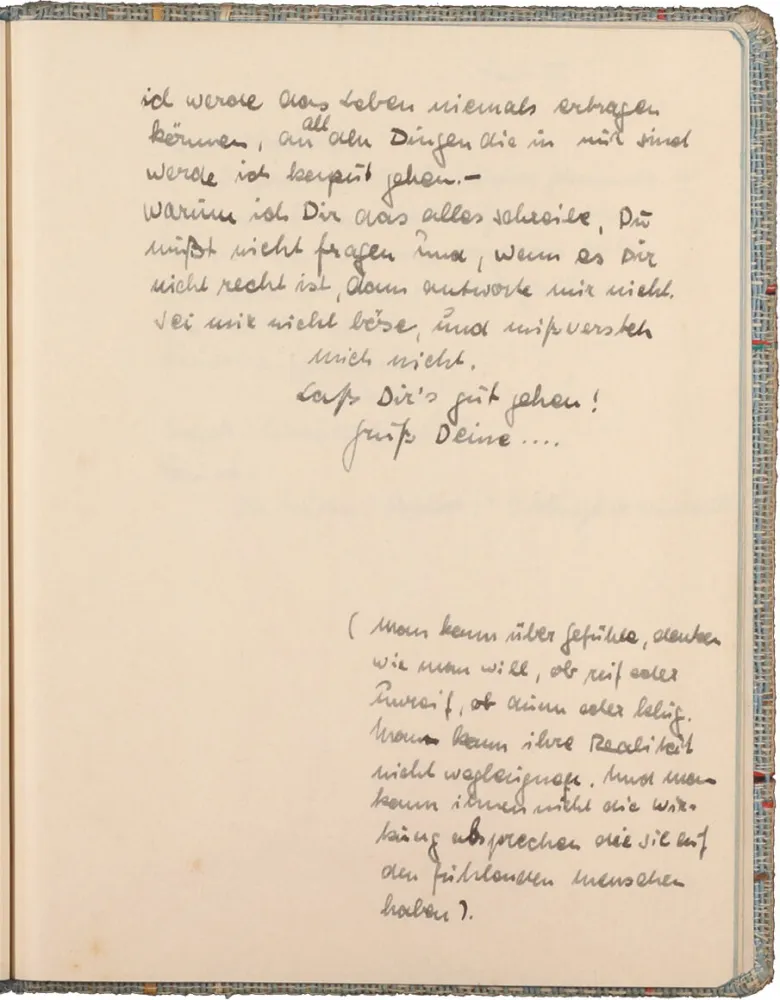 ich werde das Leben niemals ertragen
können, an all den Dingen die in mir sind
werde ich kaputt gehen.—
Warum ich Dir das alles schreibe, Du
mußt nicht fragen und, wenn es Dir
nicht recht ist, dann antworte mir nicht.
Sei mir nicht böse, und mißversteh
mich nicht.
Laß Dir's gut gehen!
Gruß Deine ....
( Man kann über Gefühle, denken
wie man will, ob reif oder
Unreif, ob dumm oder klug.
Man kann ihre Realität
nicht wegleugnen. Und man
kann ihnen nicht die Wir-
kung absprechen die sie auf
den fühlenden Menschen
haben).